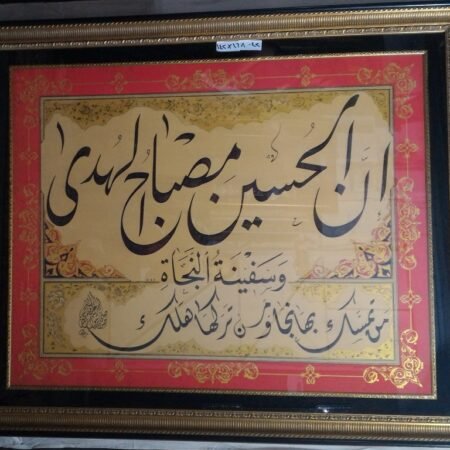 ان الحسين مصباح الهدى
وسفينة النجاة
من تمسك بها نجا ومن تركها هلك